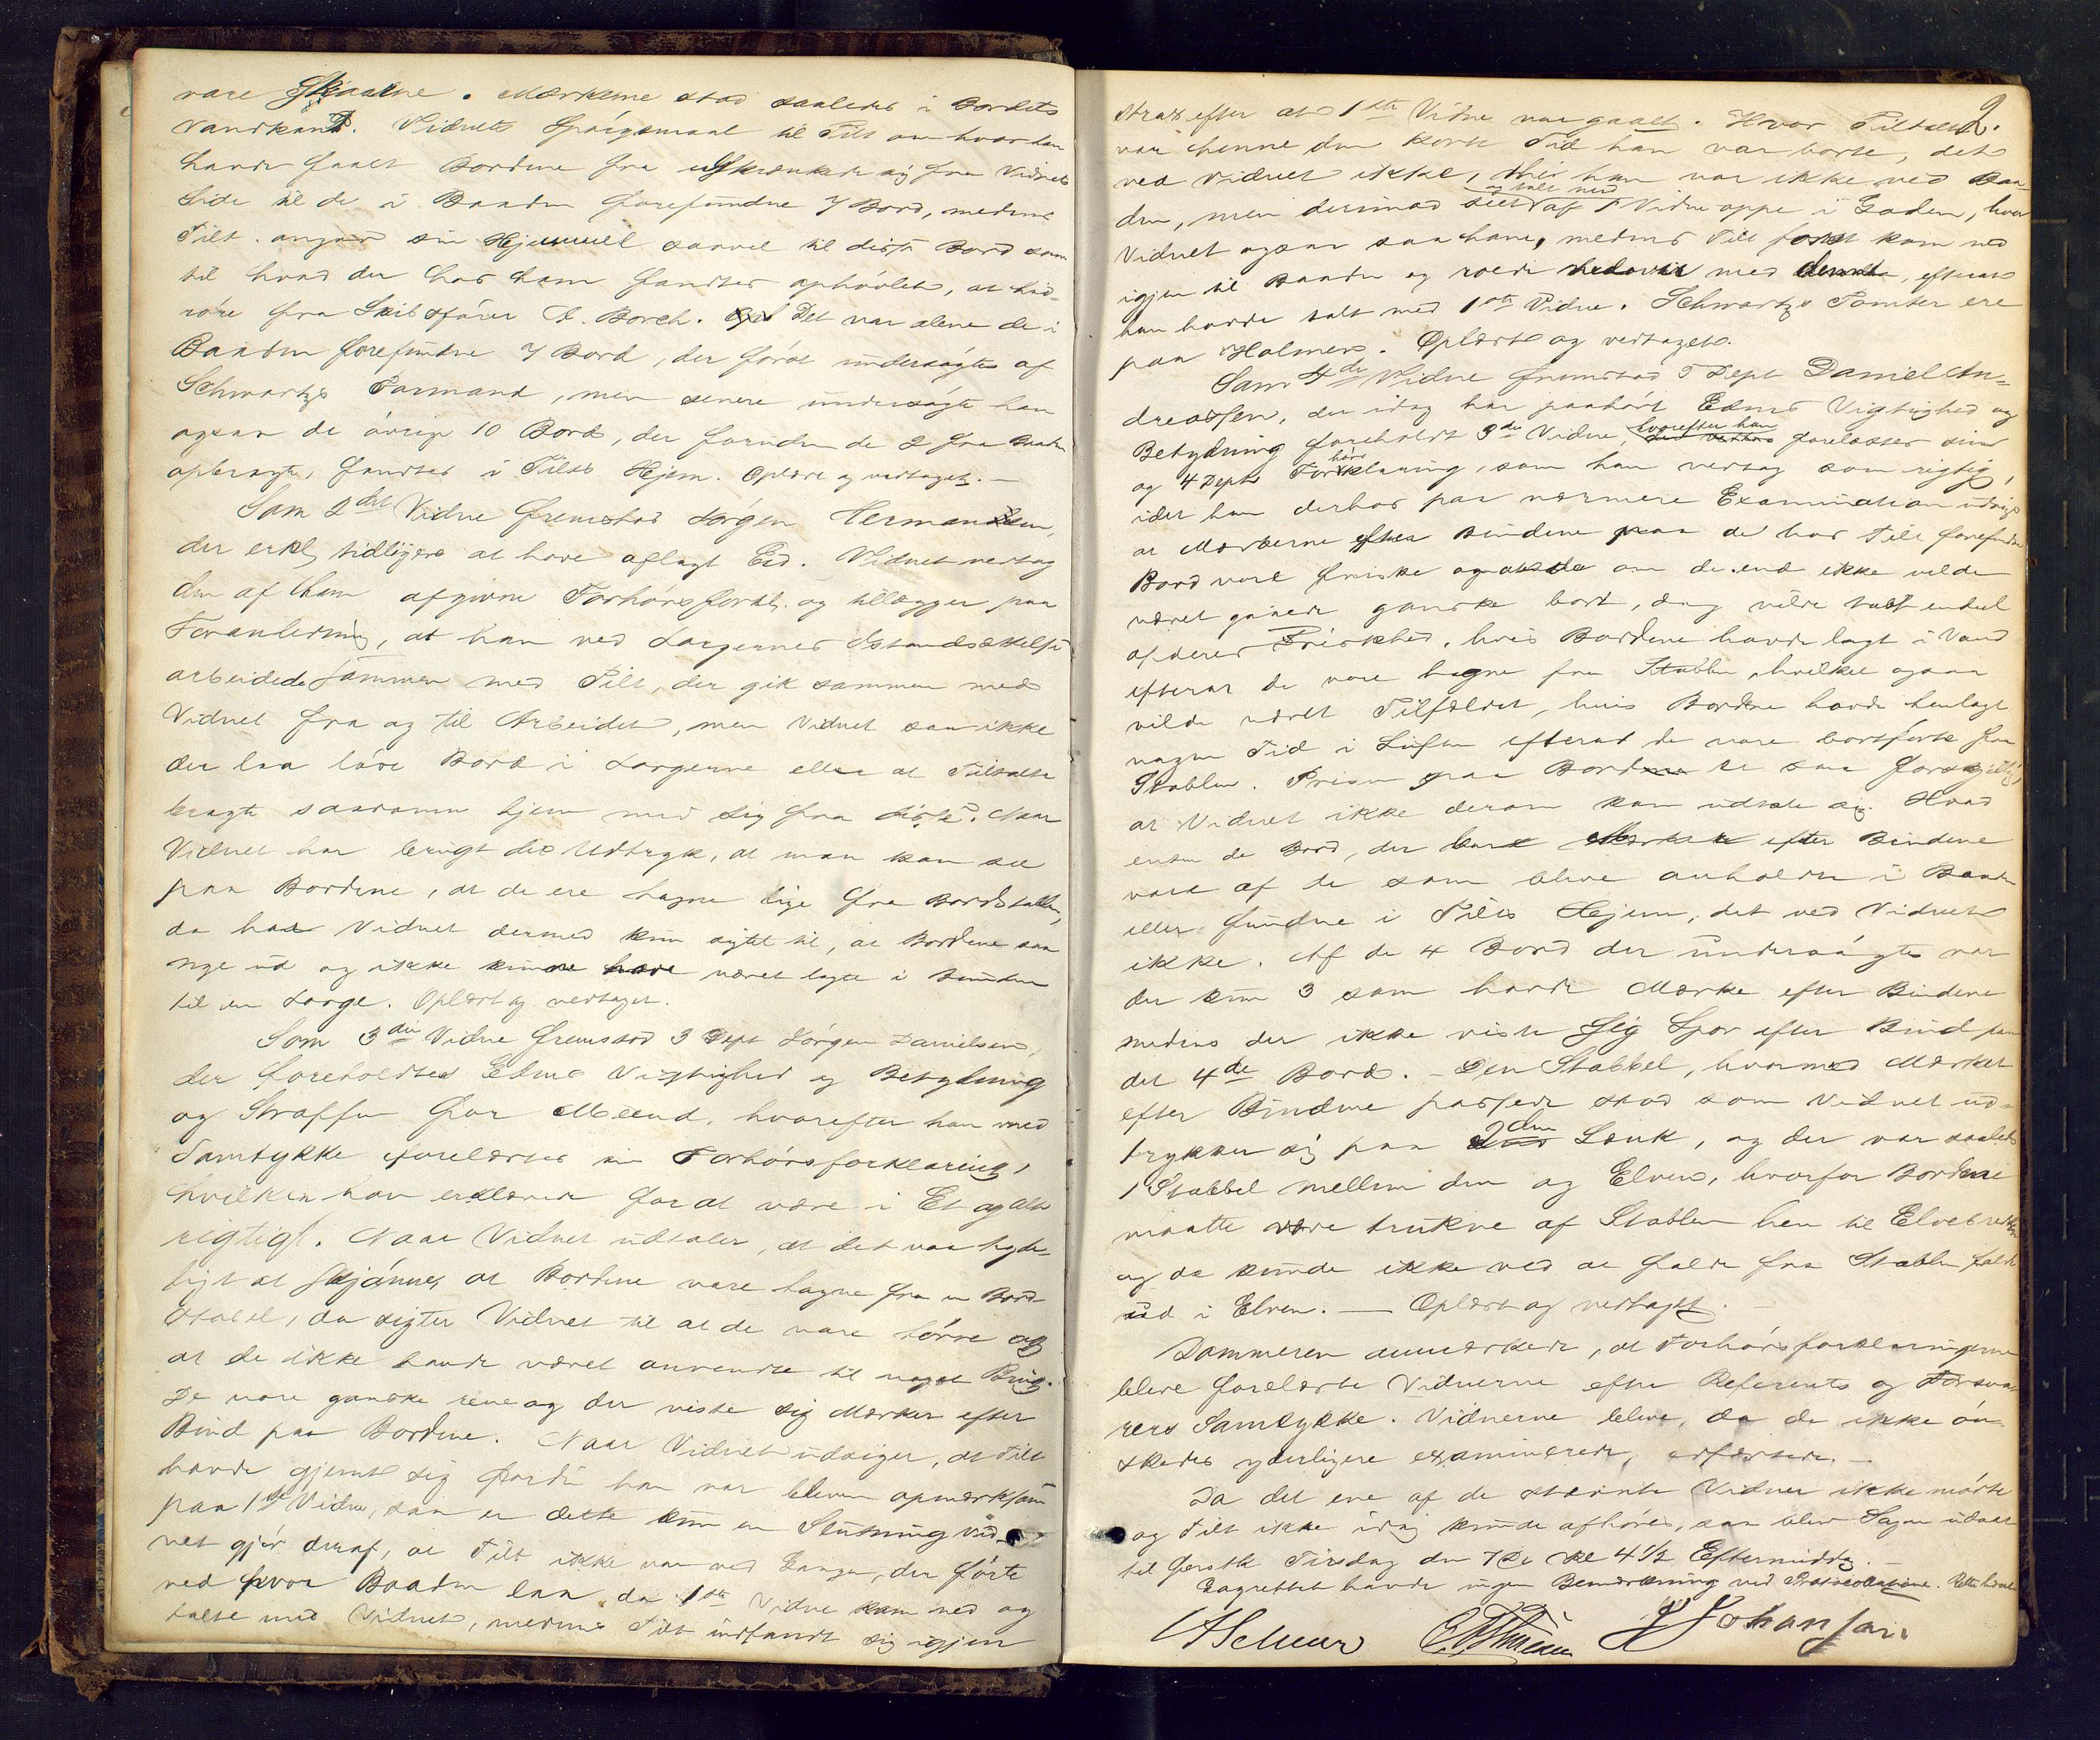 vare Skjaarne. Mærkerne stod saaledes i Bordets
Vandkant. Vidnets Spørgsmaal til Tilt om hvor han
havde faaet Bordene fra indskrænkede sig fra Vidnets
Side til de i Baaden forefundne 7 Bord, medens
Tilt. angav sin Hjemmel saavel til disse Bord som
til hvad der hos ham fandtes ophøvlet, at hid-
røre fra Skibsfører A. Borch. Det var alene de i
Baaden forefundne 7 Bord, der først undersøgtes af
Schwartz's Formand, men senere undersøgte han
ogsaa de øvrige 10 Bord, der foruden de 2 fra Baaden
opbragte, fandtes i Tilts Hjem. Oplæst og vedtaget. —
Som 2det Vidne fremstod Jørgen Hermansen,
der erkl. tidligere at have aflagt Ed. Vidnet vedtog
den af ham afgivne Forhørsforkl. og tillægger paa
Foranledning, at han ved Lorgernes Istandsættelse
arbeidede sammen med Tilt, der gik sammen med
Vidnet fra og til Arbeidet, men Vidnet saa ikke
der laa løse Bord i Lorgerne eller at Tiltalte
bragte saadanne hjem med sig fra disse. Naar
Vidnet har brugt det Udtryk, at man kan see
paa Bordene, at de ere tagne lige fra Bordstablen,
da har Vidnet dermed kun sigtet til, at Bordene saa
nye ud og ikke kunne have været lagte i Bunden
til en Lorge. Oplæst og vedtaget.
Som 3die Vidne fremstod 3 Dept Jørgen Danielsen,
der foreholdtes Edens Vigtighed og Betydning
og Straffen for Meened, hvorefter han med
Samtykke forelæstes sin Forhørsforklaring,
hvilken han erklærede for at være i Et og Alt
rigtigt. Naar Vidnet udtaler, at det var tyde-
ligt at skjønne, at Bordene vare tagne fra en Bord-
stabel, da sigter Vidnet til at de vare tørre og
at de ikke havde været anvendte til noget Brug.
De vare ganske rene og der viste sig Mærker efter
Bind paa Bordene. Naar Vidnet udsiger, at Tilt
havde gjemt sig fordi han var bleven opmærksom
paa 1ste Vidne, saa er dette kun en Slutning Vid-
net gjør deraf, at Tilt ikke var ved Gangen, der førte
ned hvor Baaden laa da 1ste Vidne kom ned og
talte med Vidnet, medens Tilt indfandt sig igjen
2.
strax efter at 1ste Vidne var gaaet. Hvor Tiltalte
var henne den korte Tid han var borte, det
ved Vidnet ikke, thi han var ikke ved Baa
den, men derimod seet og talt med af 1 Vidne oppe i Gaden, hvor
Vidnet ogsaa saa ham, medens Tilt først kom ned
igjen til Baaden og roede med denne, efterat
han havde talt med 1ste Vidne. Schwartz's Tomter ere
paa Holmen. Oplæst og vedtaget.
Som 4de Vidne fremstod 5 Dept Daniel An-
dreassen, der idag har paahørt Edens Vigtighed og
Betydning foreholdt 3die Vidne, hvorefter han forelæstes sin
og 4 Depts Forhørsklaring, som han vedtog som rigtig,
idet han derhos paa nærmere Examination udsiger
at Mærkerne efter Bindene paa de hos Tilt forefundne
Bord vare friske og at de om de end ikke vilde
været gaaede ganske bort, dog vilde tabt endeel
af deres Friskhed, hvis Bordene havde lagt i Vand
efterat de vare tagne fra Stablen, hvilket ogsaa
vilde været Tilfældet, hvis Bordene havde henlagt
nogen Tid i Luften efterat de vare bortførte fra
Stablen. Prisen paa Bord er saa forskjellig,
at Vidnet ikke derom kan udtale sig. Hvad
enten de Bord, der bare Mærker efter Bindene
vare af de som bleve anholdte i Baaden
eller fundne i Tilts Hjem, det ved Vidnet
ikke. Af de 4 Bord der undersøgtes var
der kun 3 som havde Mærke efter Bindene
medens der ikke viste sig Spor efter Bind paa
det 4de Bord. – Den Stabbel, hvormed Mærket
efter Bindene passede stod som Vidnet ud-
trykker sig paa 2den Lænk, og der var saaledes
1 Stabbel mellem den og Elven, hvorfor Bordene
maatte være trukne af Stablen hen til Elvebredden
og da kunde ikke ved at falde fra Stablen falde
ud i Elven. — Oplæst og vedtaget. –
Dommeren anmærkede, at Forhørsforklaringerne
bleve forelæste Vidnerne efter Referents og Forsva
rers Samtykke. Vidnerne bleve, da de ikke øn
skedes yderligere examinerede, edfæstede. –
Da det ene af de stævnte Vidner ikke mødte
og Tilt ikke idag kunde afhøres, saa blev Sagen udsat
til førstk Tirsdag den 7de Kl 4½ Eftermiddag. –
Lagrettet havde ingen Bemærkning ved Protocollationen. Retten hævet
J Johansen.